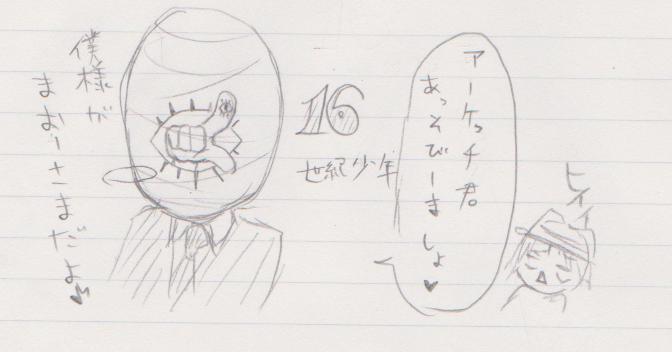 僕様が
まおーさまだよ♪
16
世紀少年
アーケッチ君
あっそびーましょ♥
ヒィィ